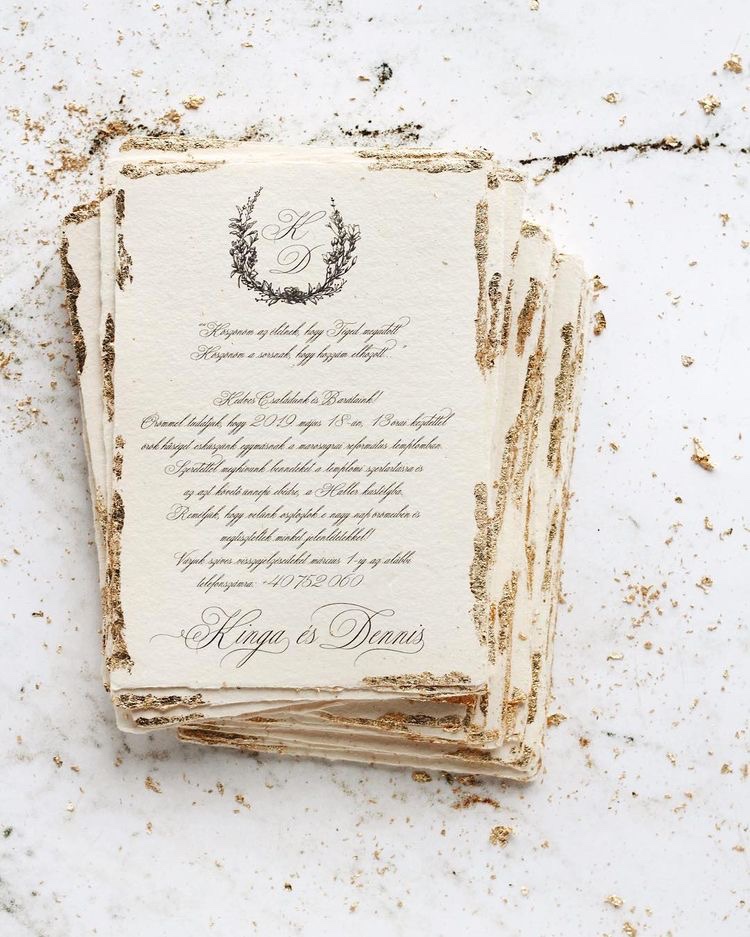 K
D
"Köszönöm az életnek, hogy Téged megadott
Köszönöm a sorsnak, hogy hozzám elhozott..."
Kedves Családunk és Barátaink!
Örömmel tudatjuk, hogy 2019 május 18-án, 13 órai kezdettel
örök hűséget esküszünk egymásnak a marosugrai református templomban.
Szeretettel meghívunk benneteket a templomi szertartásra és
az azt követő ünnepi ebédre, a Haller kastélyba.
Reméljük, hogy velünk osztoztok e nagy nap örömeiben és
megtiszteltek minket jelenlétetekkel!
Várjuk szíves visszajelzéseteket március 1-ig az alábbi
telefonszámra: +40752060
Kinga és Dennis